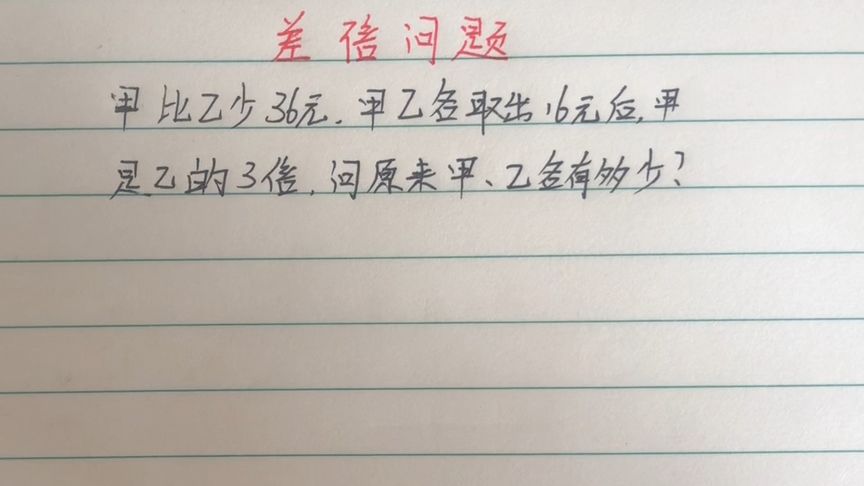 差倍问题
甲比乙少36元.甲乙各取出16元后,甲
是乙的3倍.问原来甲、乙各有多少?